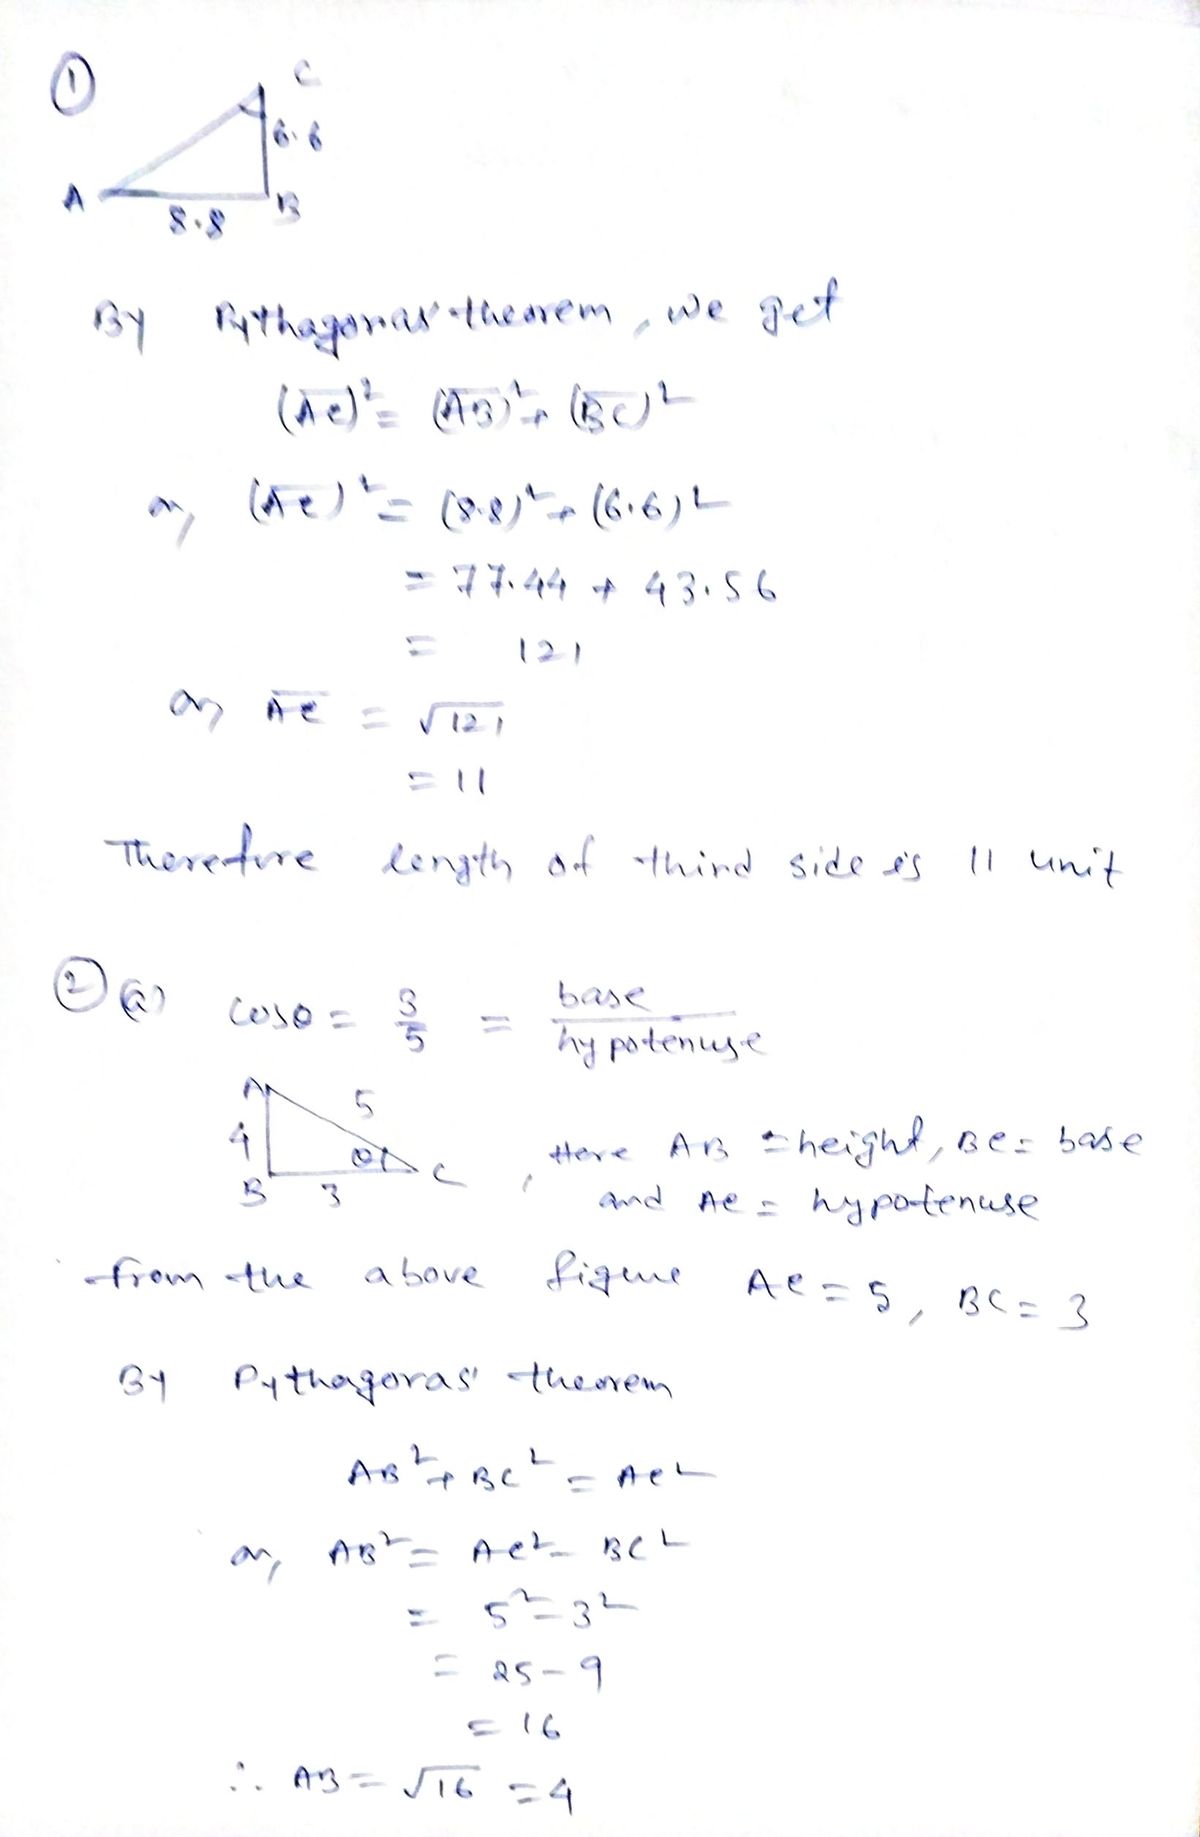 ①
C
6.6
A
B
8.8
By Pythagoras' theorem, we get
(AC)² = (AB)² + (BC)²
or, (AC)² = (8.8)² + (6.6)²
= 77.44 + 43.56
= 121
or, AC = √121
= 11
Therefore length of third side is 11 unit
② (a) cosθ = 3/5 = base/hypotenuse
A
5
4
θ
C
B
3
, Here AB = height, BC = base
and AC = hypotenuse
from the above figure AC = 5, BC = 3
By Pythagoras' theorem
AB² + BC² = AC²
or, AB² = AC² - BC²
= 5² - 3²
= 25 - 9
= 16
∴ AB = √16 = 4